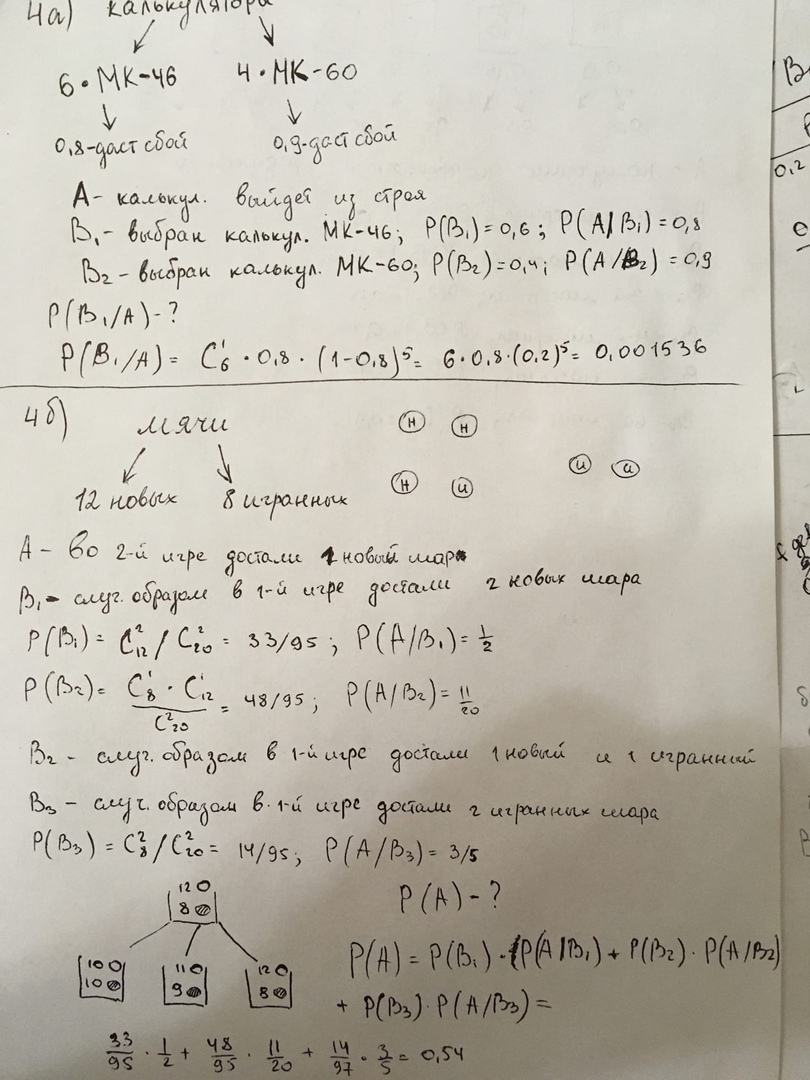 4а) калькулятора
6 • МК-46 4 • МК-60
0,8-даст сбой 0,9-даст сбой
А - калькул. выйдет из строя
B₁ - выбран калькул. МК-46; P(B₁)=0,6; P(A/B₁)=0,8
B₂ - выбран калькул. МК-60; P(B₂)=0,4; P(A/B₂)=0,9
P(B₁/A)-?
P(B₁/A) = C₆¹ • 0,8 • (1-0,8)⁵ = 6•0,8•(0,2)⁵ = 0,001536
4б) мячи
н н
12 новых 8 игранных н и и и
А - во 2-й игре достали 1 новый шар
B₁ - случ. образом в 1-й игре достали 2 новых шара
P(B₁) = C₁₂² / C₂₀² = 33/95; P(A/B₁) = 1/2
P(B₂) = C₈¹ • C₁₂¹ / C₂₀² = 48/95; P(A/B₂) = 11/20
B₂ - случ. образом в 1-й игре достали 1 новый и 1 игранный
B₃ - случ. образом в 1-й игре достали 2 игранных шара
P(B₃) = C₈² / C₂₀² = 14/95; P(A/B₃) = 3/5
12
8
P(A) - ?
10 11 12
10 9 8
P(A) = P(B₁) • P(A/B₁) + P(B₂) • P(A/B₂)
+ P(B₃) • P(A/B₃) =
33/95 • 1/2 + 48/95 • 11/20 + 14/97 • 3/5 = 0,54
0,2